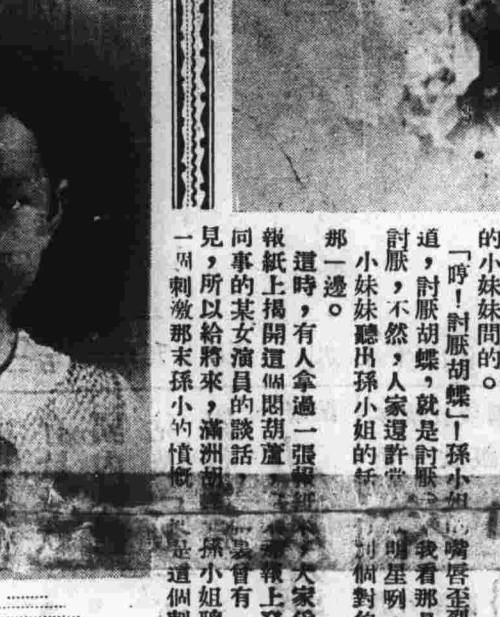 的小妹妹問的。
「哼！討厭胡蝶」！孫小姐 嘴唇歪裂
道，討厭胡蝶，就是討厭 我看那
討厭，不然，人家還許 明星咧
小妹妹聽出孫小姐的話 個對
那一邊。
這時，有人拿過一張報紙 人家
報紙上揭開這個悶葫蘆， 報上
同事的某女演員的談話， 曾有
見，所以給將來，滿洲胡 孫小姐
一個刺激那末孫小的憤慨 是這個